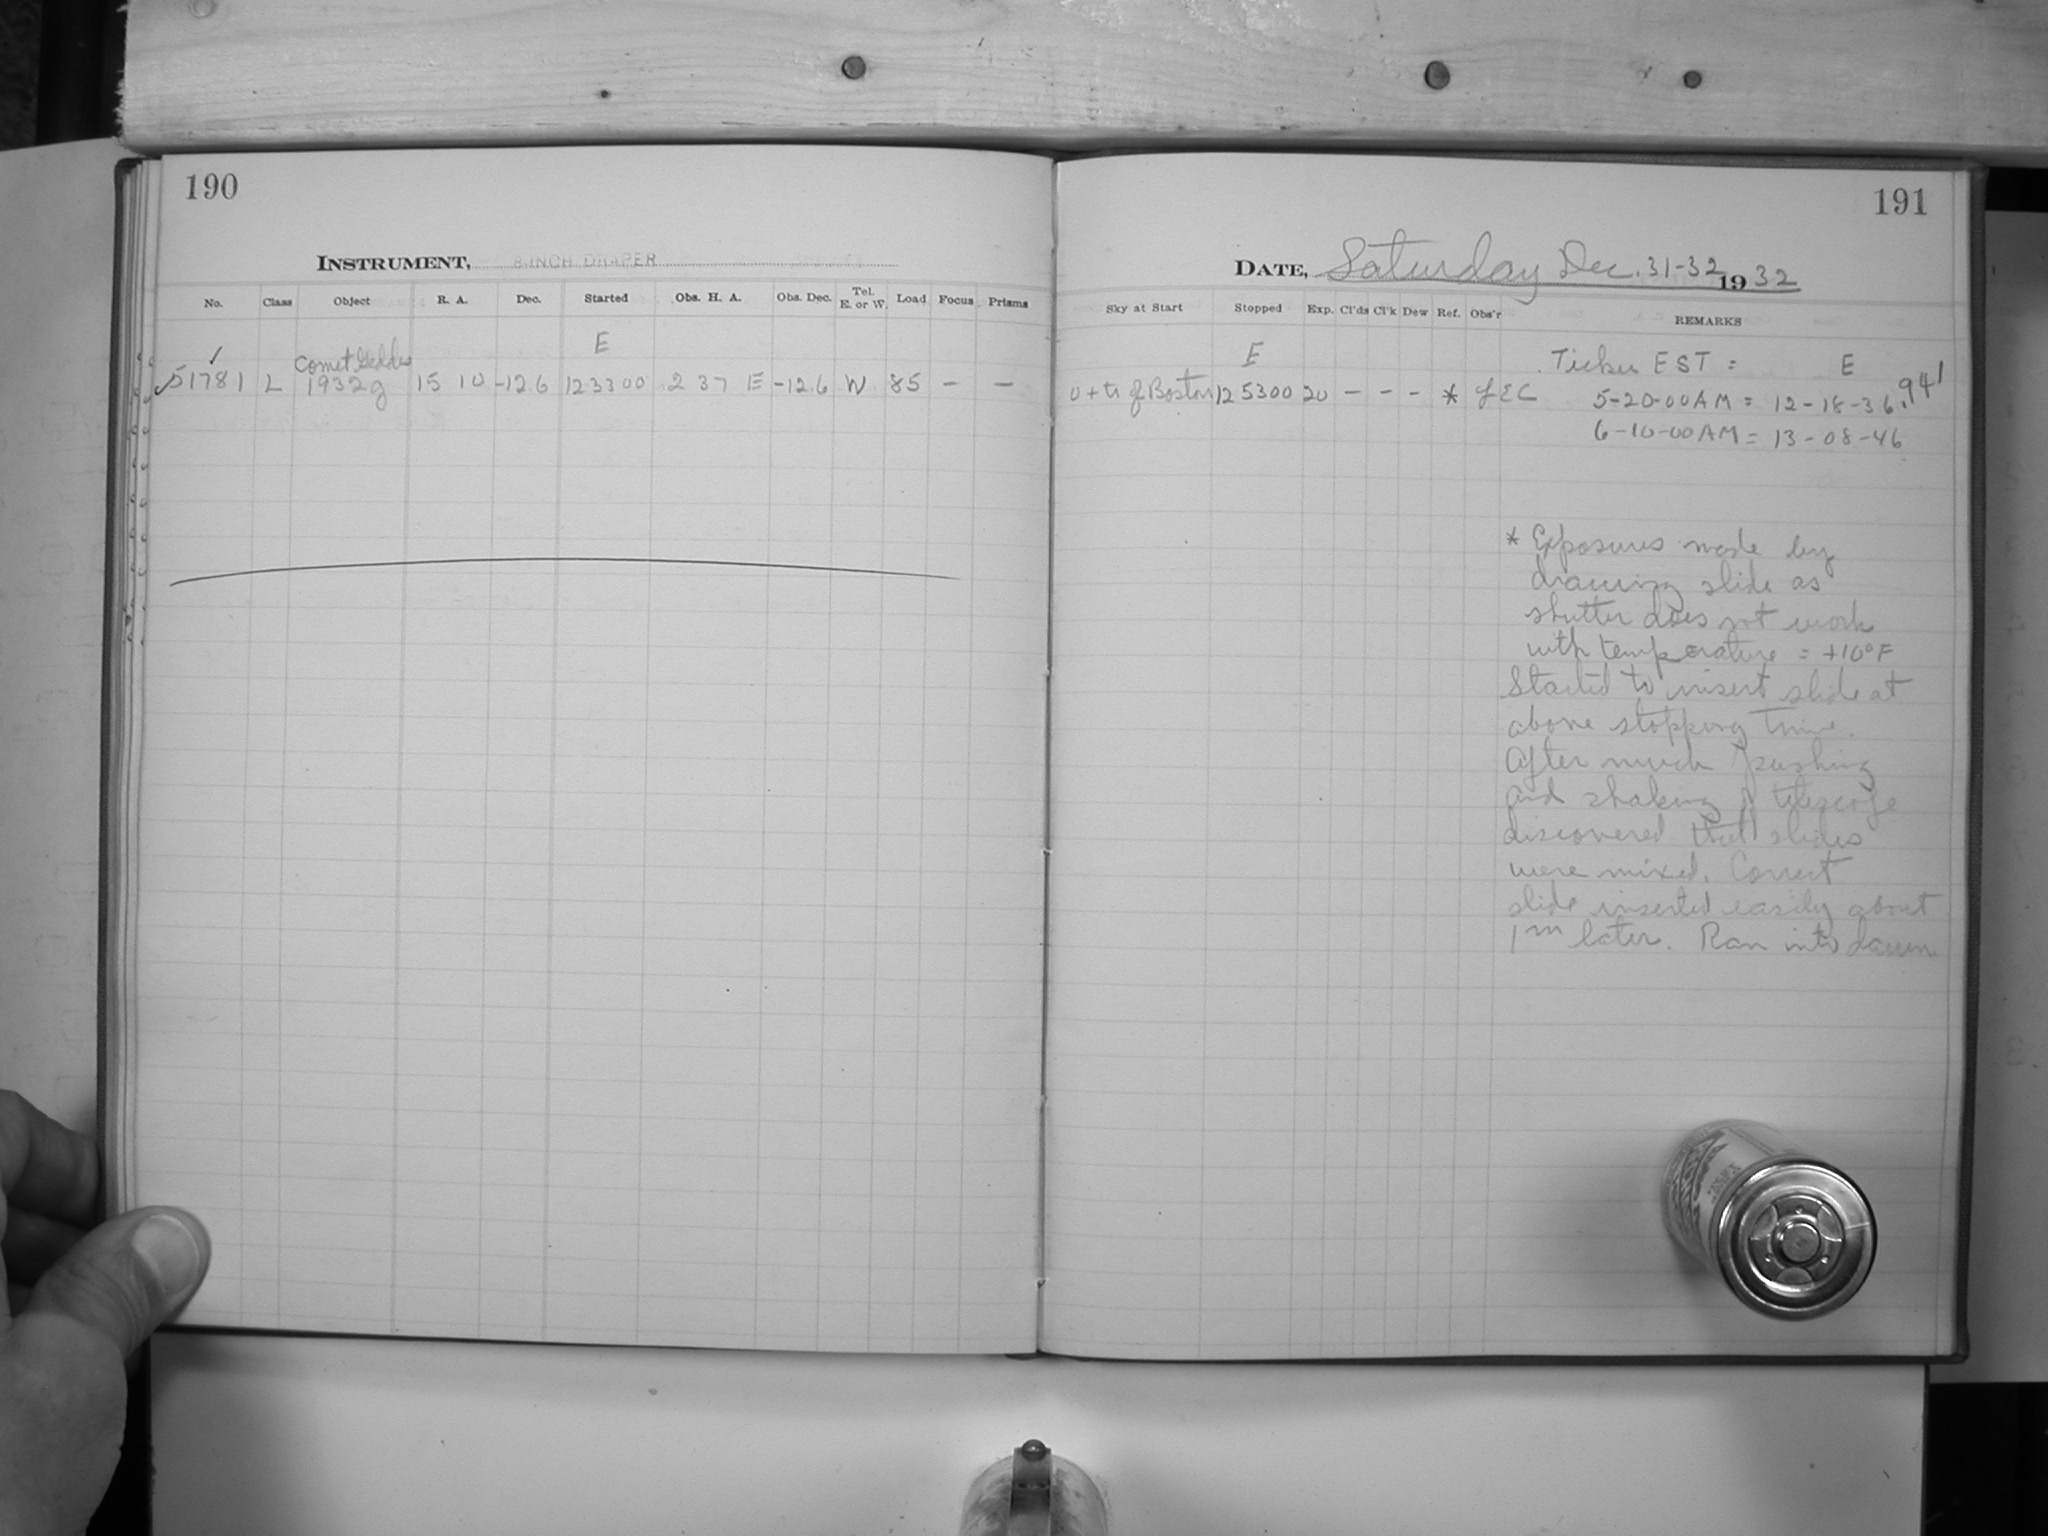 190
INSTRUMENT, 8 INCH DRAPER
No. Class Object R. A. Dec. Started Obs. H. A. Obs. Dec. Tel. E. or W. Load Focus Prisms
E
✓ Comet Geddes
✓51781 L 1932g 15 10 -12.6 12 33 00 2 37 E -12.6 W 85 - -
191
DATE, Saturday Dec. 31-32 1932
Sky at Start Stopped Exp. Cl'ds Cl'k Dew Ref. Obs'r REMARKS
E
0 + tr of Boston 12 53 00 20 - - - *
Ticker EST = E
5-20-00 AM = 12-18-36 .941
6-10-00 AM = 13-08-46
* Exposures made by
drawing slide as
shutter does not work
with temperature = +10°F
Started to insert slide at
above stopping time.
After much pushing
and shaking of telescope
discovered that slides
were mixed. Correct
slide inserted easily about
1m later. Ran into dawn.